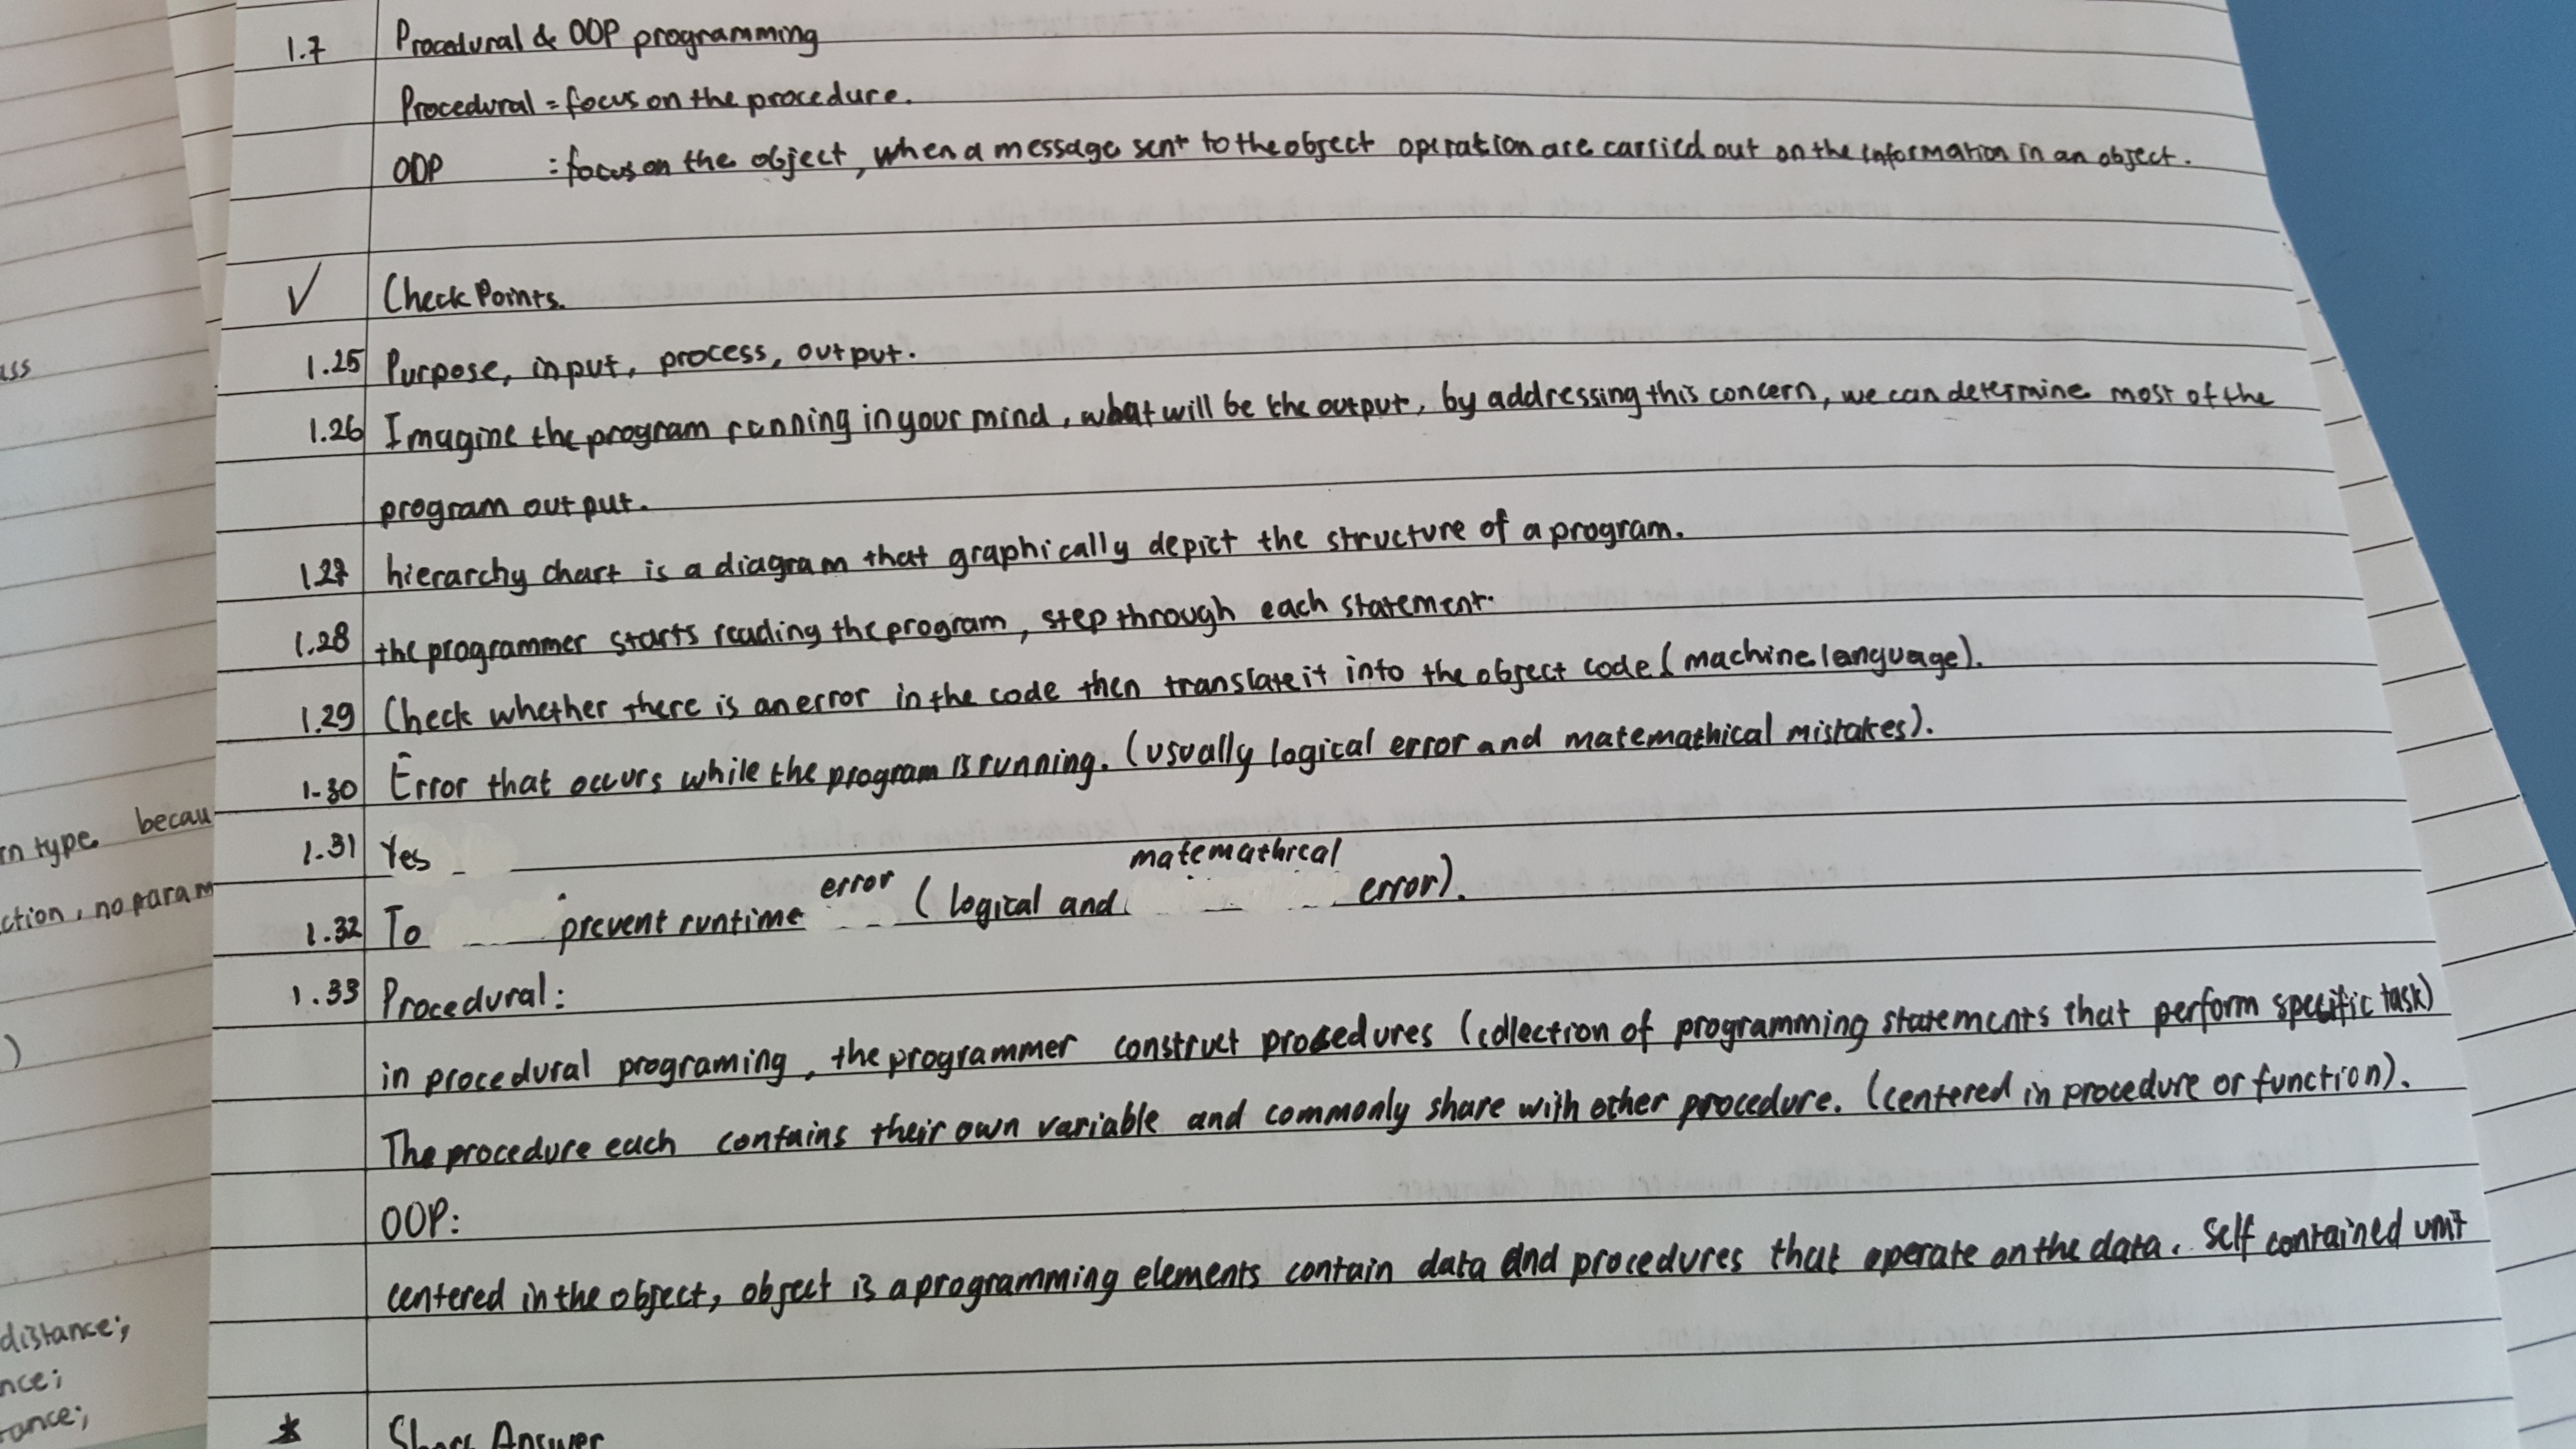 1.7 Procedural & OOP programming
Procedural = focus on the procedure.
OOP : focus on the object, when a message sent to the object operation are carried out on the information in an object.
✓ Check Points.
1.25 Purpose, input, process, output.
1.26 Imagine the program running in your mind, what will be the output, by addressing this concern, we can determine most of the
program output.
1.27 hierarchy chart is a diagram that graphically depict the structure of a program.
1.28 the programmer starts reading the program, step through each statement.
1.29 Check whether there is an error in the code then translate it into the object code (machine language).
1.30 Error that occurs while the program is running. (usually logical error and matemathical mistakes).
1.31 Yes
1.32 To prevent runtime error (logical and matemathical error).
1.33 Procedural:
in procedural programing, the programmer construct procedures (collection of programming statements that perform specific task)
The procedure each contains their own variable and commonly share with other procedure. (centered in procedure or function).
OOP:
centered in the object, object is a programming elements contain data and procedures that operate on the data. Self contained unit
* Short Answer
ass
rn type. becau
ction, no param
)
distance;
nce;
tance;